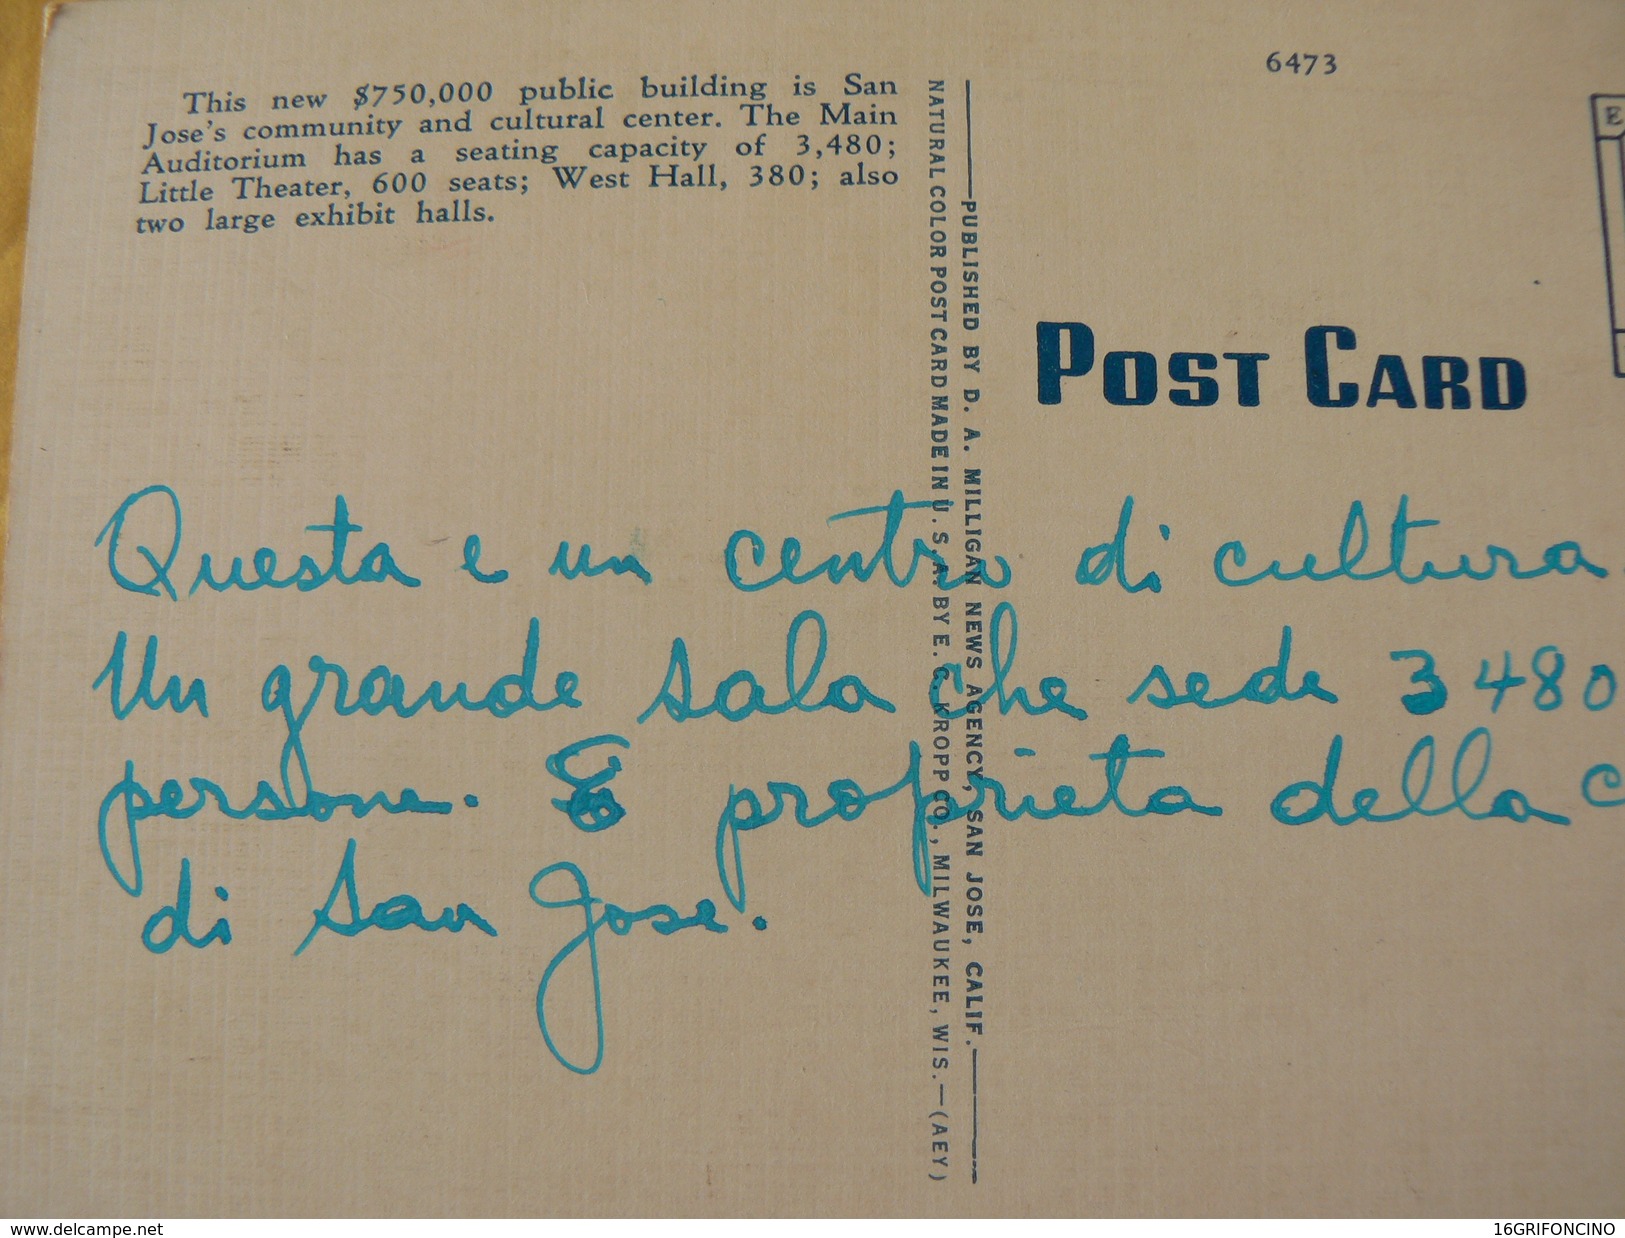 This new $750,000 public building is San
Jose's community and cultural center. The Main
Auditorium has a seating capacity of 3,480;
Little Theater, 600 seats; West Hall, 380; also
two large exhibit halls.
NATURAL COLOR POST CARD MADE IN U. S. A. BY E. C. KROPP CO., MILWAUKEE, WIS.—(AEY)
PUBLISHED BY D. A. MILLIGAN NEWS AGENCY, SAN JOSE, CALIF.
6473
E
POST CARD
Questa e un centro di cultura.
Un grande sala che sede 3480
persone. E proprieta della c
di San Jose.
www.delcampe.net
16GRIFONCINO